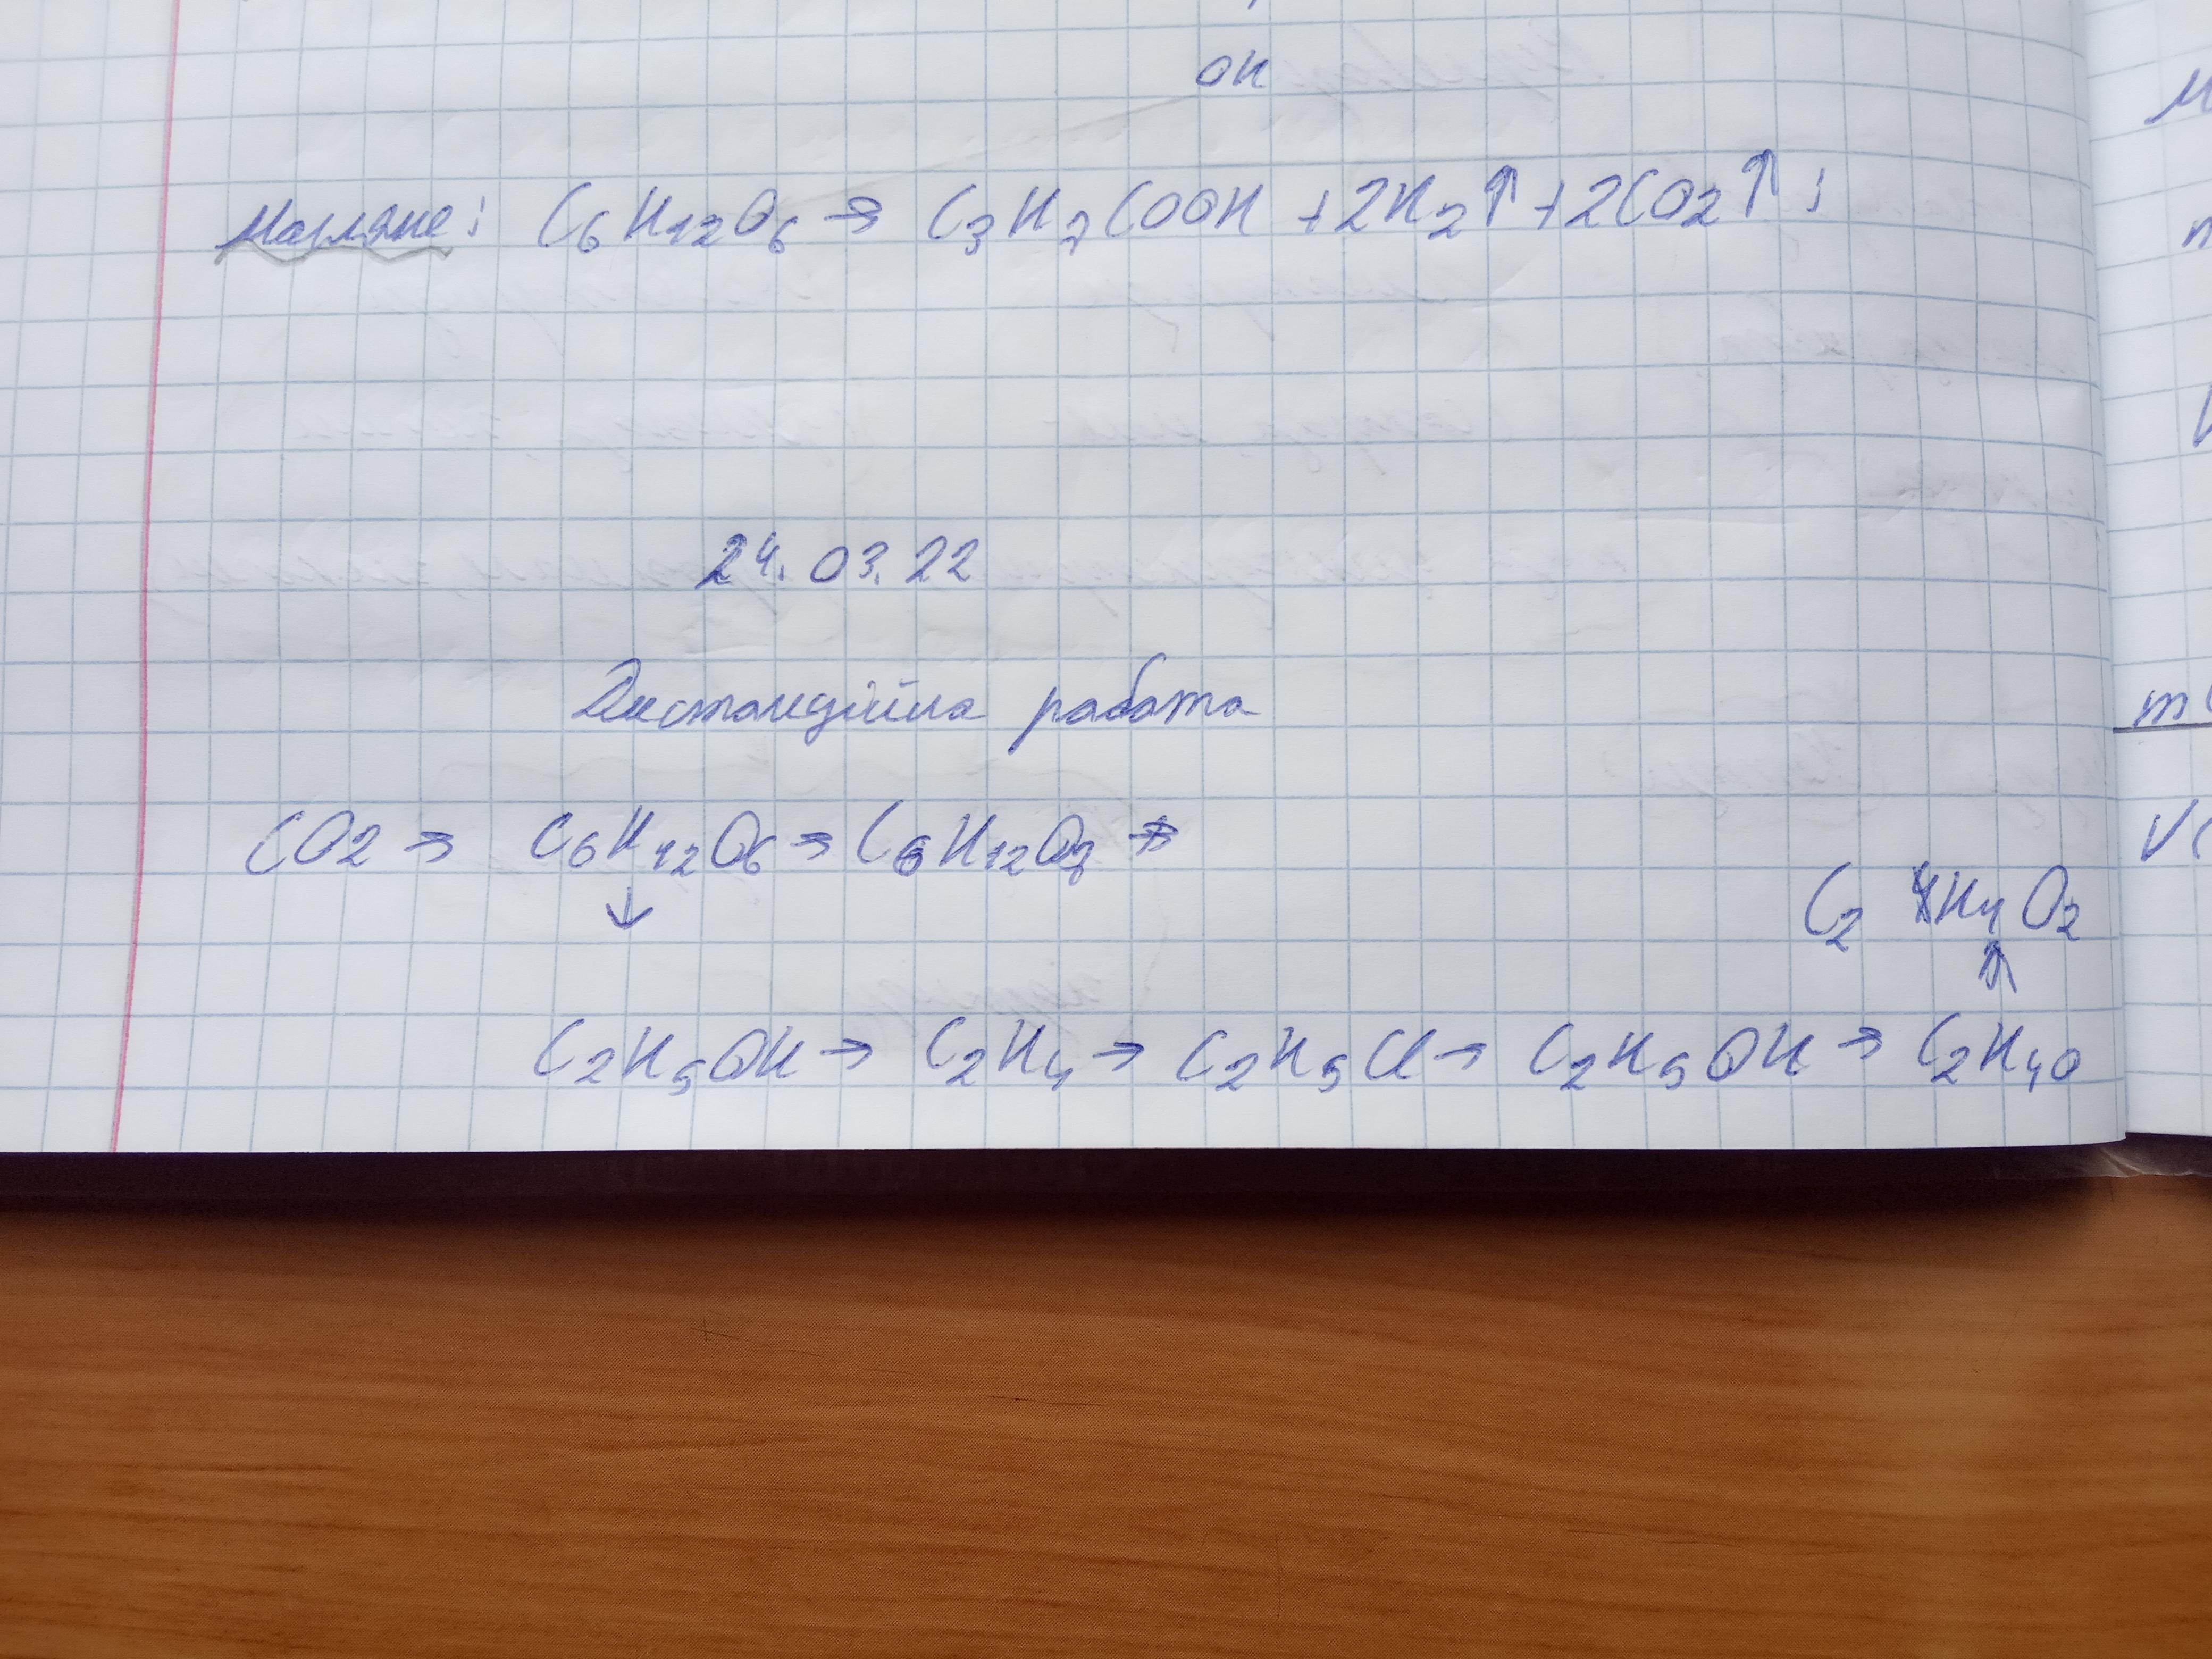 OH
Масляне: C₆H₁₂O₆ → C₃H₇COOH + 2H₂↑ + 2CO₂↑;
24.03.22
Дистанційна работа
CO2 → C₆H₁₂O₆ → C₆H₁₂O₇ →
↓
C₂ H₄ O₂
↑
C₂H₅OH → C₂H₄ → C₂H₅Cl → C₂H₅OH → C₂H₄O
m(
V(